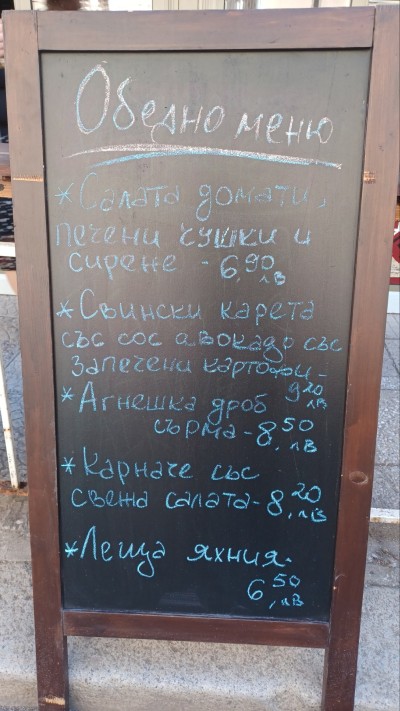 Обедно меню
*Салата домати,
печени чушки и
сирене - 6,90 лв
*Свински карета
със сос авокадо със
запечени картофи -
9,20 лв
*Агнешка дроб
сърма - 8,50 лв
*Карначе със
свежа салата - 8,20 лв
*Леща яхния -
6,50 лв